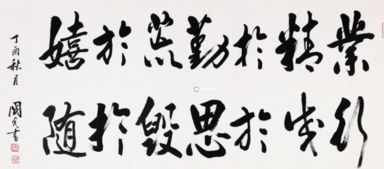 業精於勤荒於嬉
行成於思毁於随
丁酉秋月
書